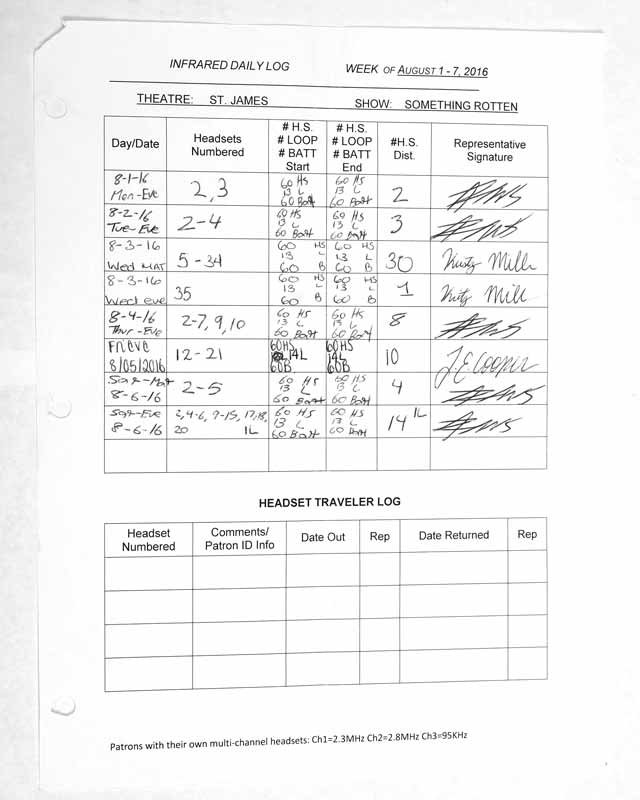 INFRARED DAILY LOG WEEK OF AUGUST 1 - 7, 2016
THEATRE: ST. JAMES SHOW: SOMETHING ROTTEN
Day/Date
Headsets
Numbered
# H.S.
# LOOP
# BATT
Start
# H.S.
# LOOP
# BATT
End
#H.S.
Dist.
Representative
Signature
8-1-16
Mon-Eve
2,3
60 HS
13 L
60 Batt
60 HS
13 L
60 Batt
2
8-2-16
Tue-Eve
2-4
60 HS
13 L
60 Batt
60 HS
13 L
60 Batt
3
8-3-16
Wed MAT
5-34
60 HS
13 L
60 B
60 HS
13 L
60 B
30
8-3-16
Wed eve
35
60 HS
13 L
60 B
60 HS
13 L
60 B
1
8-4-16
Thur-Eve
2-7, 9, 10
60 HS
13 L
60 Batt
60 HS
13 L
60 Batt
8
FRI EVE
8/05/2016
12-21
60HS
14L
60B
60HS
14L
60B
10
J.E. Cooper
Sat-Mat
8-6-16
2-5
60 HS
13 L
60 Batt
60 HS
13 L
60 Batt
4
Sat-Eve
8-6-16
2, 4-6, 9-15, 17, 18,
20 1L
60 HS
13 L
60 Batt
60 HS
13 L
60 Batt
14 1L
HEADSET TRAVELER LOG
Headset
Numbered
Comments/
Patron ID Info
Date Out
Rep
Date Returned
Rep
Patrons with their own multi-channel headsets: Ch1=2.3MHz Ch2=2.8MHz Ch3=95KHz